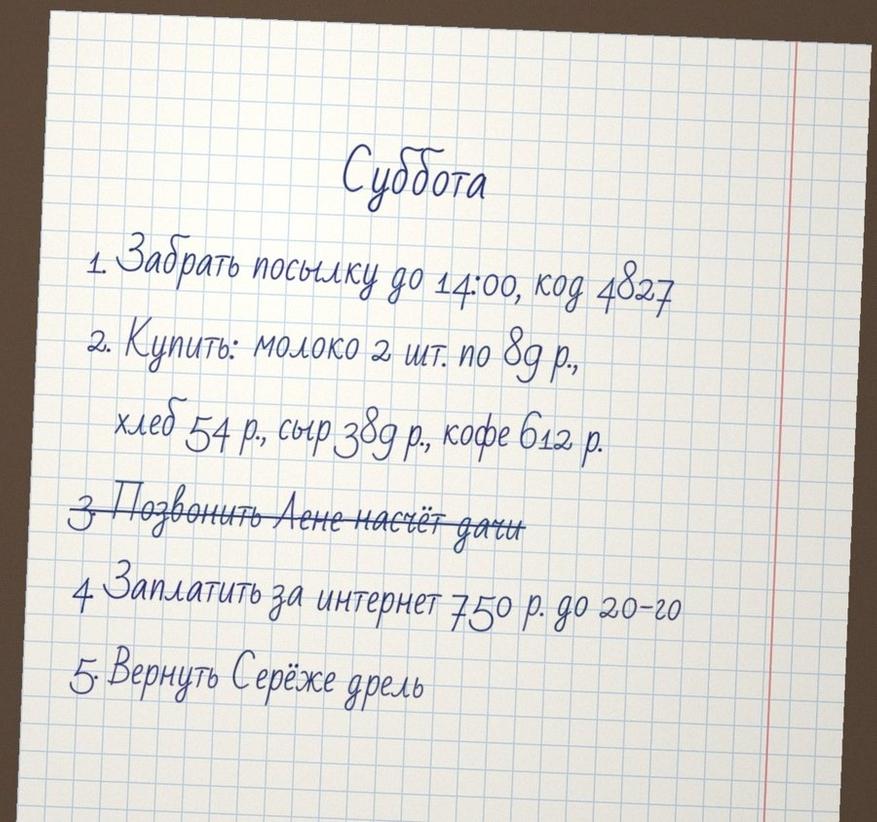 Суббота
1. Забрать посылку до 14:00, код 4827
2. Купить: молоко 2 шт. по 89 р.,
хлеб 54 р., сыр 389 р., кофе 612 р.
3. Позвонить Лене насчёт дачи
4 Заплатить за интернет 750 р. до 20-го
5. Вернуть Серёже дрель